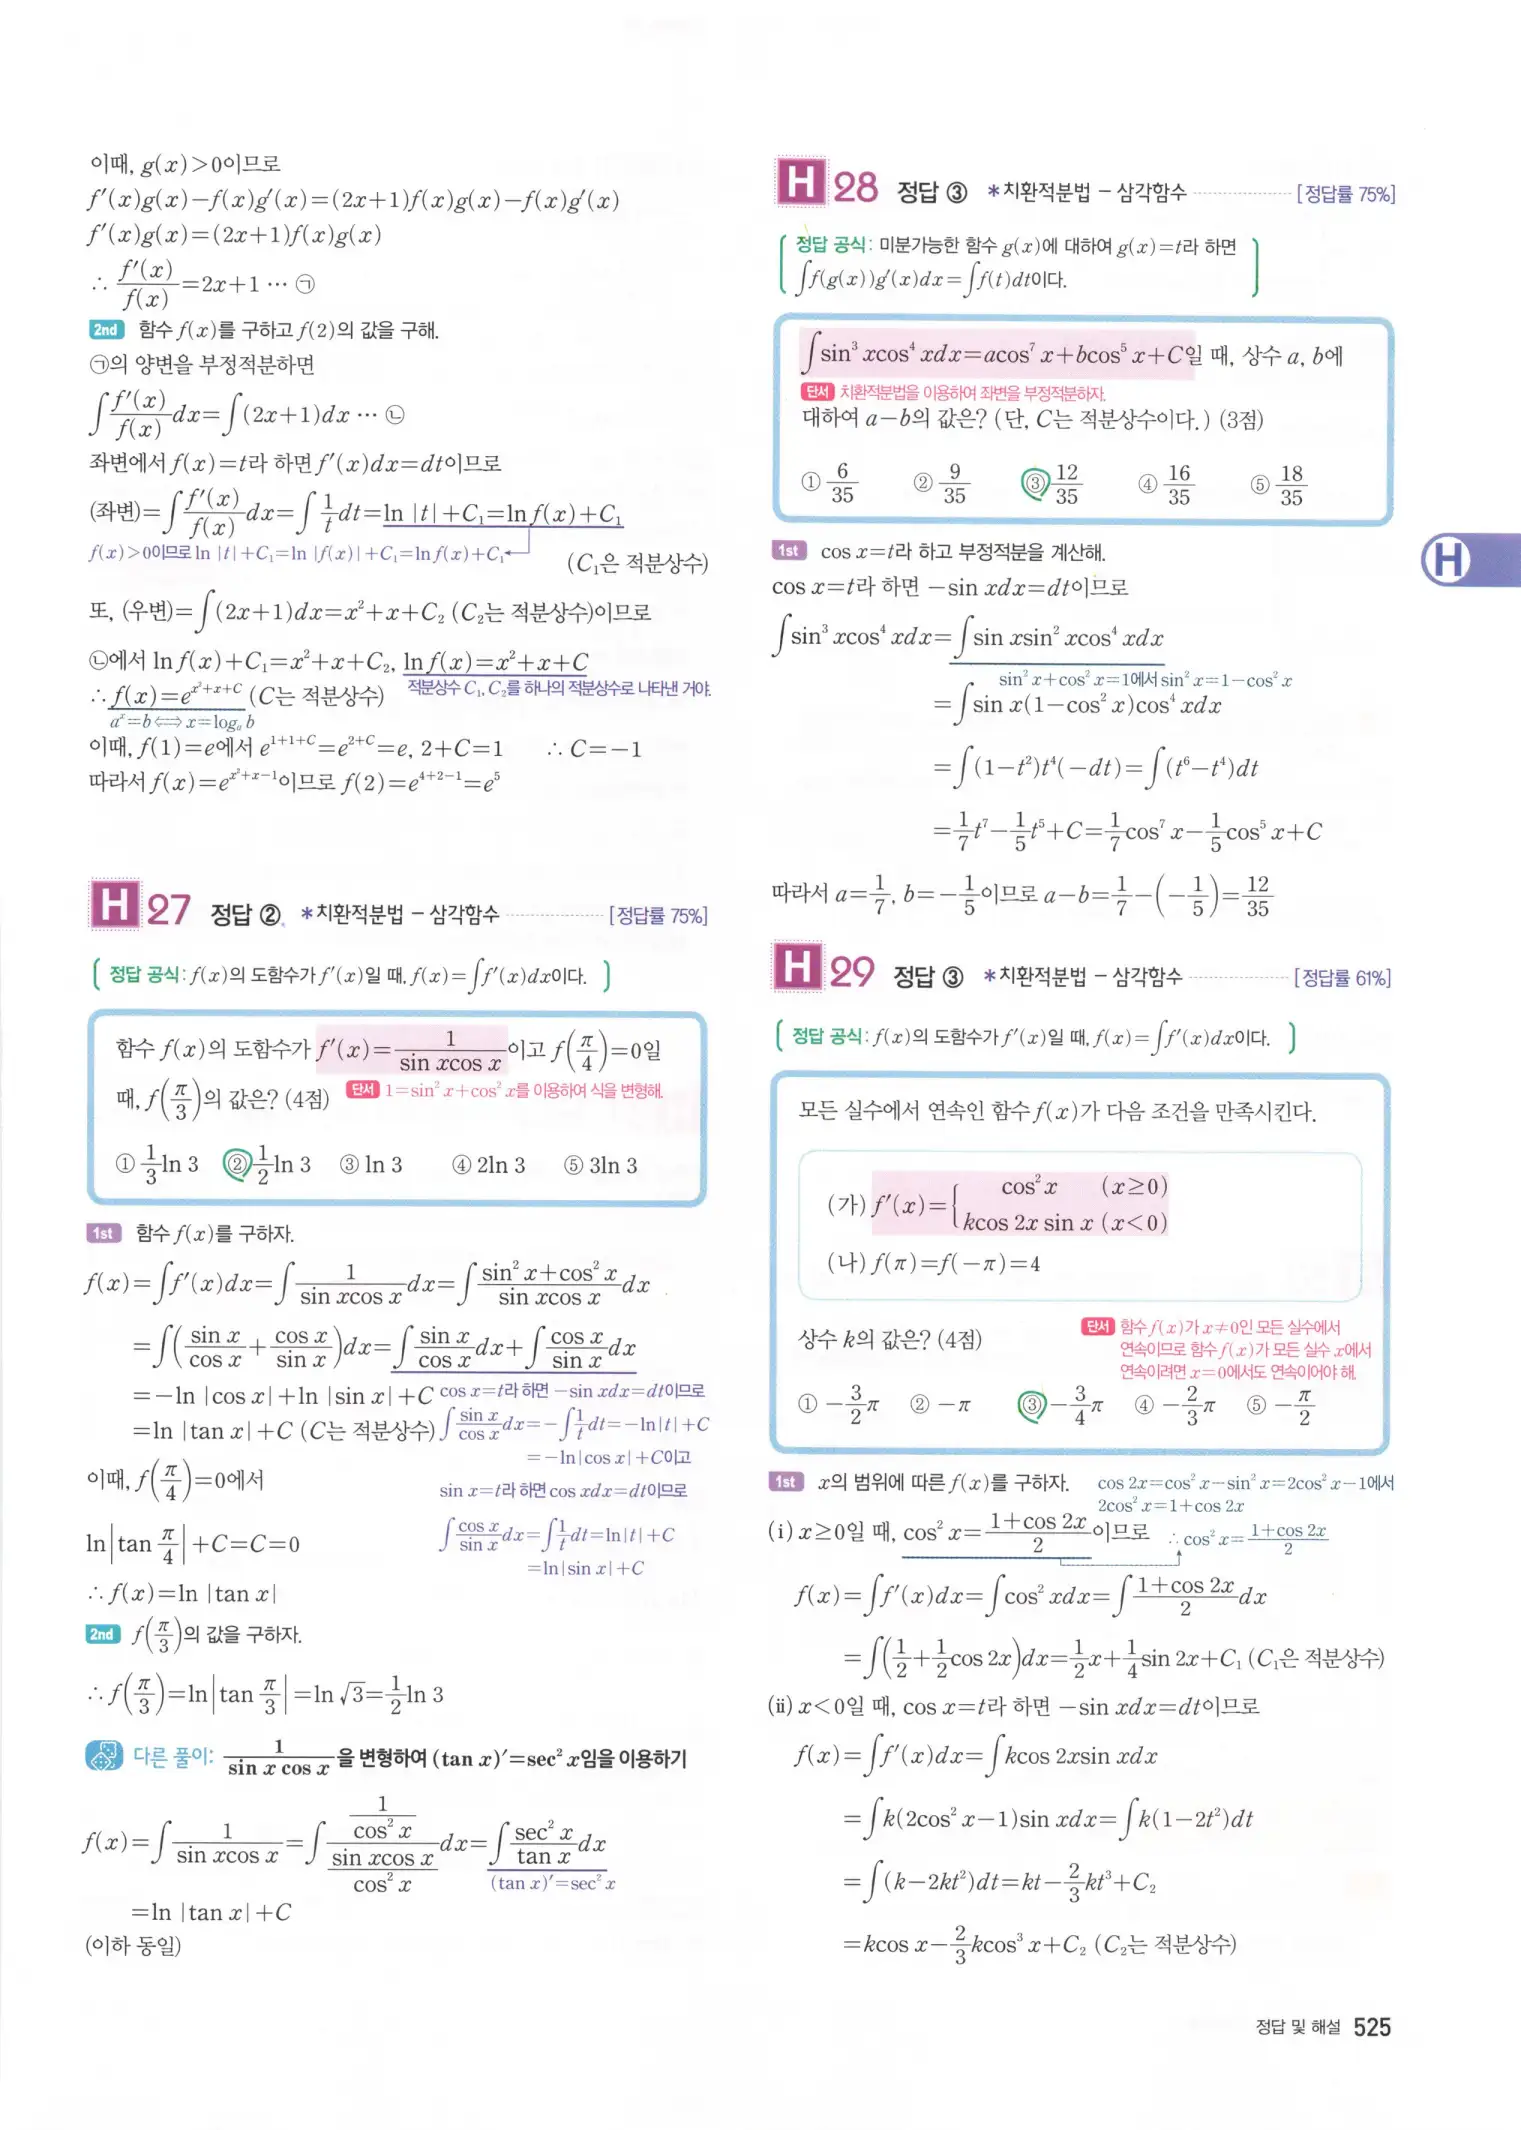 이때, g(x)>0이므로
f′(x)g(x)−f(x)g′(x)=(2x+1)f(x)g(x)−f(x)g′(x)
f′(x)g(x)=(2x+1)f(x)g(x)
∴ f′(x)/f(x)=2x+1 ⋯ ㉠
2nd 함수 f(x)를 구하고 f(2)의 값을 구해.
㉠의 양변을 부정적분하면
∫f′(x)/f(x) dx=∫(2x+1)dx ⋯ ㉡
좌변에서 f(x)=t라 하면 f′(x)dx=dt이므로
(좌변)=∫f′(x)/f(x) dx=∫1/t dt=ln |t|+C₁=ln f(x)+C₁
f(x)>0이므로 ln |t|+C₁=ln |f(x)|+C₁=ln f(x)+C₁
(C₁은 적분상수)
또, (우변)=∫(2x+1)dx=x²+x+C₂ (C₂는 적분상수)이므로
㉡에서 ln f(x)+C₁=x²+x+C₂, ln f(x)=x²+x+C
적분상수 C₁, C₂를 하나의 적분상수로 나타낸 거야.
∴ f(x)=e^(x²+x+C) (C는 적분상수)
aˣ=b⟺x=logₐ b
이때, f(1)=e에서 e^(1+1+C)=e^(2+C)=e, 2+C=1 ∴ C=−1
따라서 f(x)=e^(x²+x−1)이므로 f(2)=e^(4+2−1)=e⁵
H 27 정답 ② *치환적분법 − 삼각함수 [정답률 75%]
정답 공식: f(x)의 도함수가 f′(x)일 때, f(x)=∫f′(x)dx이다.
함수 f(x)의 도함수가 f′(x)=1/(sin xcos x)이고 f(π/4)=0일
때, f(π/3)의 값은? (4점) 단서 1=sin² x+cos² x를 이용하여 식을 변형해.
① 1/3 ln 3 ② 1/2 ln 3 ③ ln 3 ④ 2ln 3 ⑤ 3ln 3
1st 함수 f(x)를 구하자.
f(x)=∫f′(x)dx=∫1/(sin xcos x) dx=∫(sin² x+cos² x)/(sin xcos x) dx
=∫(sin x/cos x+cos x/sin x)dx=∫sin x/cos x dx+∫cos x/sin x dx
=−ln |cos x|+ln |sin x|+C
=ln |tan x|+C (C는 적분상수)
cos x=t라 하면 −sin xdx=dt이므로
∫sin x/cos x dx=−∫1/t dt=−ln|t|+C
=−ln|cos x|+C이고
sin x=t라 하면 cos xdx=dt이므로
∫cos x/sin x dx=∫1/t dt=ln|t|+C
=ln|sin x|+C
이때, f(π/4)=0에서
ln|tan π/4|+C=C=0
∴ f(x)=ln |tan x|
2nd f(π/3)의 값을 구하자.
∴ f(π/3)=ln|tan π/3|=ln √3=1/2 ln 3
다른 풀이: 1/(sin x cos x)을 변형하여 (tan x)′=sec² x임을 이용하기
f(x)=∫1/(sin xcos x)=∫(1/cos² x)/(sin xcos x/cos² x) dx=∫sec² x/tan x dx
(tan x)′=sec² x
=ln |tan x|+C
(이하 동일)
H 28 정답 ③ *치환적분법 − 삼각함수 [정답률 75%]
정답 공식: 미분가능한 함수 g(x)에 대하여 g(x)=t라 하면
∫f(g(x))g′(x)dx=∫f(t)dt이다.
∫sin³ xcos⁴ xdx=acos⁷ x+bcos⁵ x+C일 때, 상수 a, b에
단서 치환적분법을 이용하여 좌변을 부정적분하자.
대하여 a−b의 값은? (단, C는 적분상수이다.) (3점)
① 6/35 ② 9/35 ③ 12/35 ④ 16/35 ⑤ 18/35
1st cos x=t라 하고 부정적분을 계산해.
cos x=t라 하면 −sin xdx=dt이므로
∫sin³ xcos⁴ xdx=∫sin xsin² xcos⁴ xdx
sin² x+cos² x=1에서 sin² x=1−cos² x
=∫sin x(1−cos² x)cos⁴ xdx
=∫(1−t²)t⁴(−dt)=∫(t⁶−t⁴)dt
=1/7 t⁷−1/5 t⁵+C=1/7 cos⁷ x−1/5 cos⁵ x+C
따라서 a=1/7, b=−1/5이므로 a−b=1/7−(−1/5)=12/35
H 29 정답 ③ *치환적분법 − 삼각함수 [정답률 61%]
정답 공식: f(x)의 도함수가 f′(x)일 때, f(x)=∫f′(x)dx이다.
모든 실수에서 연속인 함수 f(x)가 다음 조건을 만족시킨다.
(가) f′(x)={ cos² x (x≥0)
kcos 2x sin x (x<0)
(나) f(π)=f(−π)=4
상수 k의 값은? (4점)
단서 함수 f(x)가 x≠0인 모든 실수에서
연속이므로 함수 f(x)가 모든 실수 x에서
연속이려면 x=0에서도 연속이어야 해.
① −3/2 π ② −π ③ −3/4 π ④ −2/3 π ⑤ −π/2
1st x의 범위에 따른 f(x)를 구하자.
cos 2x=cos² x−sin² x=2cos² x−1에서
2cos² x=1+cos 2x
∴ cos² x=(1+cos 2x)/2
(i) x≥0일 때, cos² x=(1+cos 2x)/2이므로
f(x)=∫f′(x)dx=∫cos² xdx=∫(1+cos 2x)/2 dx
=∫(1/2+1/2 cos 2x)dx=1/2 x+1/4 sin 2x+C₁ (C₁은 적분상수)
(ii) x<0일 때, cos x=t라 하면 −sin xdx=dt이므로
f(x)=∫f′(x)dx=∫kcos 2xsin xdx
=∫k(2cos² x−1)sin xdx=∫k(1−2t²)dt
=∫(k−2kt²)dt=kt−2/3 kt³+C₂
=kcos x−2/3 kcos³ x+C₂ (C₂는 적분상수)
H
정답 및 해설 525